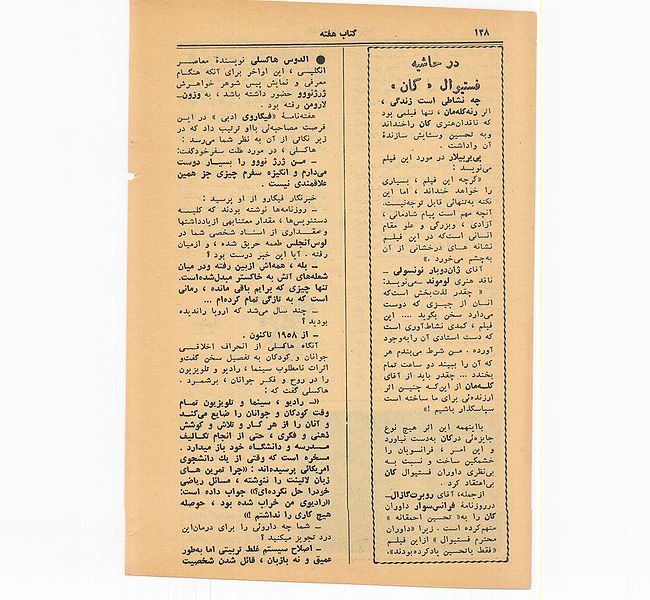 ۱۳۸
کتاب هفته
در حاشیه
فستیوال «کان»
چه نشاطی است زندگی ،
اثر رنه‌کله‌مان ، تنها فیلمی بود
که ناقدان‌هنری کان راخنداند
وبه تحسین وستایش سازندهٔ
آن واداشت .
پی‌یربیلار در مورد این فیلم
می‌نویسد :
«گرچه این فیلم ، بسیاری
را خواهد خنداند ، اما این
نکته به‌تنهائی قابل توجه‌نیست.
آنچه مهم است پیام شادمانی ،
آزادی ، وبزرگی و علو مقام
انسانی است‌که در این فیلم
نشانه های درخشانی از آن
به‌چشم می‌خورد .»
آقای ژان‌دوبار نونسولی ـ
ناقد هنری لوموند ـ می‌نویسد:
« چقدر لذت‌بخش است‌که
انسان از چیزی که دوست
می‌دارد سخن بگوید .... این
فیلم ، کمدی نشاط‌آوری است
که دست استادی آن رابه‌وجود
آورده . من شرط می‌بندم هر
که آن را ببیند دو ساعت تمام
بخندد ... چقدر باید از آقای
کله‌مان از این‌که چنین اثر
ارزنده‌ئی برای ما ساخته است
سپاسگذار باشیم !»
بااینهمه این اثر هیچ نوع
جایزه‌ئی درکان به‌دست نیاورد
و این امر ، فرانسویان را
خشمگین ساخت و نسبت به
بی‌نظری داوران فستیوال کان
بی‌اعتقاد کرد .
ازجمله، آقای روبرت‌گازال‌ـ
درروزنامهٔ فرانس‌سوار داوران
کان را به« تحسین احمقانه »
متهم‌کرده است . زیرا «داوران
محترم فستیوال » ازاین فیلم
«فقط باتحسین یادکرده‌بودند».
● الدوس هاکسلی نویسندهٔ معاصر
انگلیسی ، این اواخر برای آنکه هنگام
معرفی و نمایش پیس شوهر خواهرش
ژرژنووو حضور داشته باشد ، به وزون‌ـ
لارومن رفته بود .
هفته‌نامهٔ «فیگاروی ادبی » در این
فرصت مصاحبه‌ئی بااو ترتیب داد که در
زیر نکاتی از آن به نظر شما می‌رسد :
هاکسلی ، در مورد علت سفرخودگفت:
ـ من ژرژ نووو را بسیار دوست
می‌دارم و انگیزه سفرم چیزی جز همین
علاقمندی نیست .
خبرنگار فیگارو از او پرسید :
ـ روزنامه‌ها نوشته بودند که کلیه
دستنویس‌ها ، مقدار معتنابهی ازیادداشتها
ومقداری از اسناد شخصی شما در
لوس‌آنجلس طعمه حریق شده ، و ازمیان
رفته . آیا این خبر درست بود ؟
ـ بله ، همه‌اش ازبین رفته ودر میان
شعله‌های آتش به خاکستر مبدل‌شده‌است.
تنها چیزی که برایم باقی مانده ، رمانی
است که به تازگی تمام کرده‌ام ...
ـ چند سال می‌شد که اروپا راندیده
بودید ؟
ـ از ۱۹۵۸ تاکنون .
آنگاه هاکسلی از انحراف اخلاقی
جوانان و کودکان به تفصیل سخن گفت‌و
اثرات نامطلوب سینما ، رادیو و تلویزیون
را در روح و فکر جوانان ، برشمرد .
هاکسلی گفت که :
«ـ رادیو ، سینما و تلویزیون تمام
وقت کودکان و جوانان را ضایع می‌کند
و آنان را از هر کار و تلاش و کوشش
ذهنی و فکری ، حتی از انجام تکالیف
مدرسه و دانشگاه خود باز میدارد .
مسخره است که وقتی از یک دانشجوی
امریکائی پرسیده‌اند : «چرا تمرین های
زبان لاتینت را ننوشته ، مسائل ریاضی
خودرا حل نکرده‌ای؟» جواب داده است:
«رادیوی من خراب شده بود ، حوصله
هیچ کاری را نداشتم !»
ـ شما چه داروئی را برای درمان‌این
درد تجویز میکنید ؟
ـ اصلاح سیستم غلط تربیتی اما به‌طور
عمیق و نه بازبان ، قائل شدن شخصیت